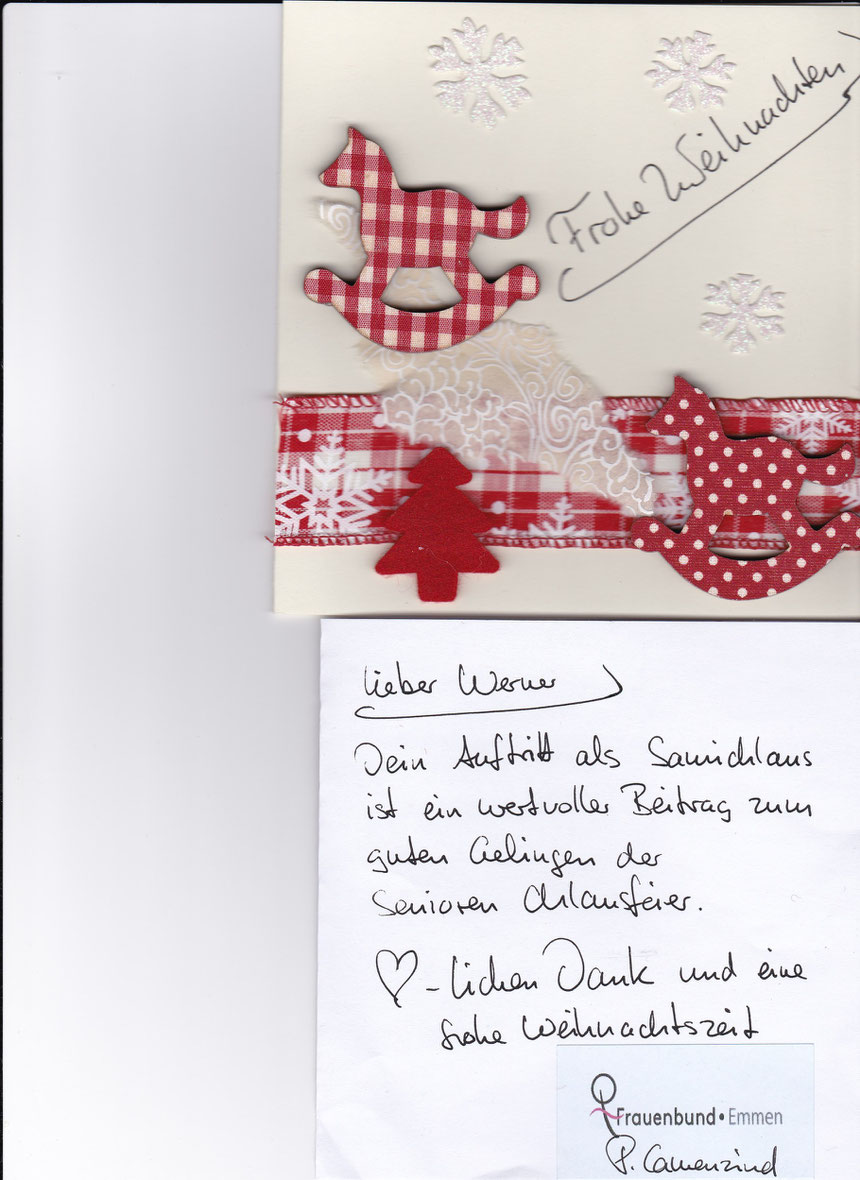 Frohe Weihnachten
lieber Werner
Dein Auftritt als Samichlaus
ist ein wertvoller Beitrag zum
guten Gelingen der
Senioren Chlausfeier.
♡-lichen Dank und eine
frohe Weihnachtszeit
Frauenbund • Emmen
P. Camenzind